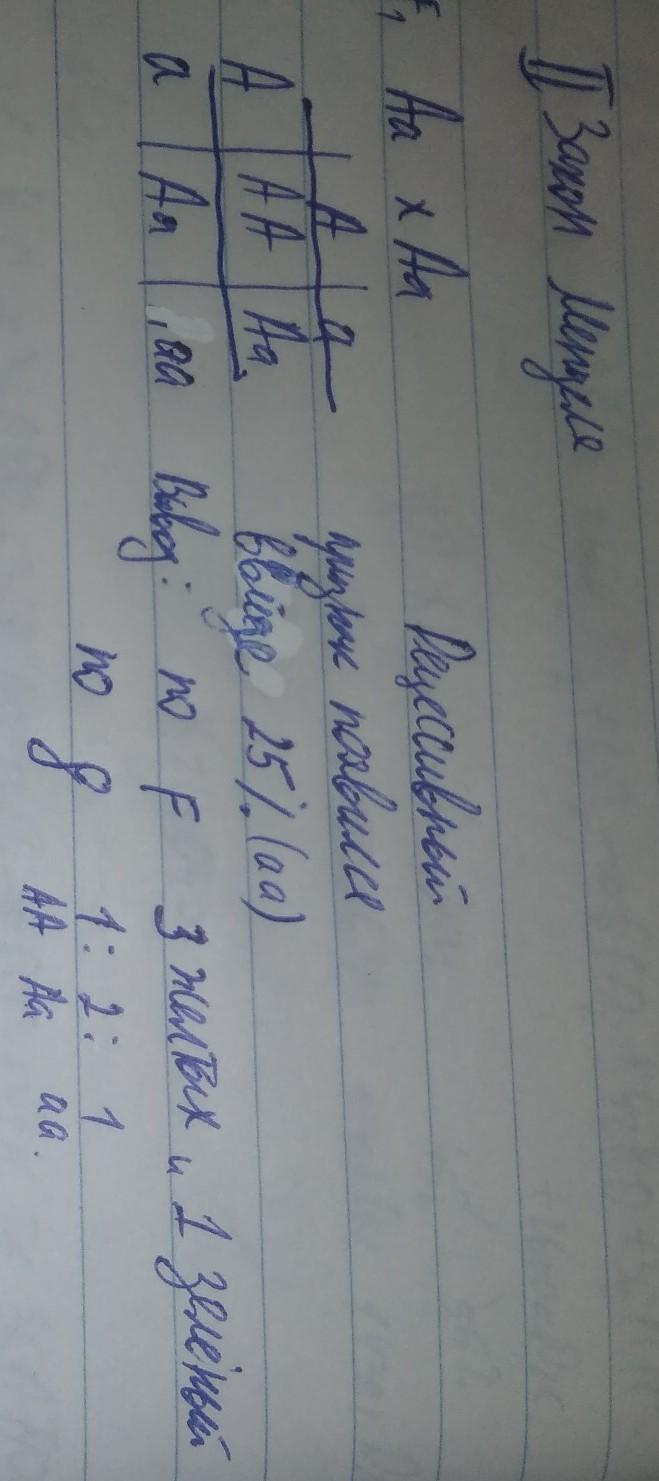 II Закон Менделя
F₁ Aa x Aa
Рецессивный
A a
признак появился
A AA Aa
в виде 25% (aa)
a Aa aa
Вывод: по F 3 желтых и 1 зелёный
по g 1 : 2 : 1
AA Aa aa.